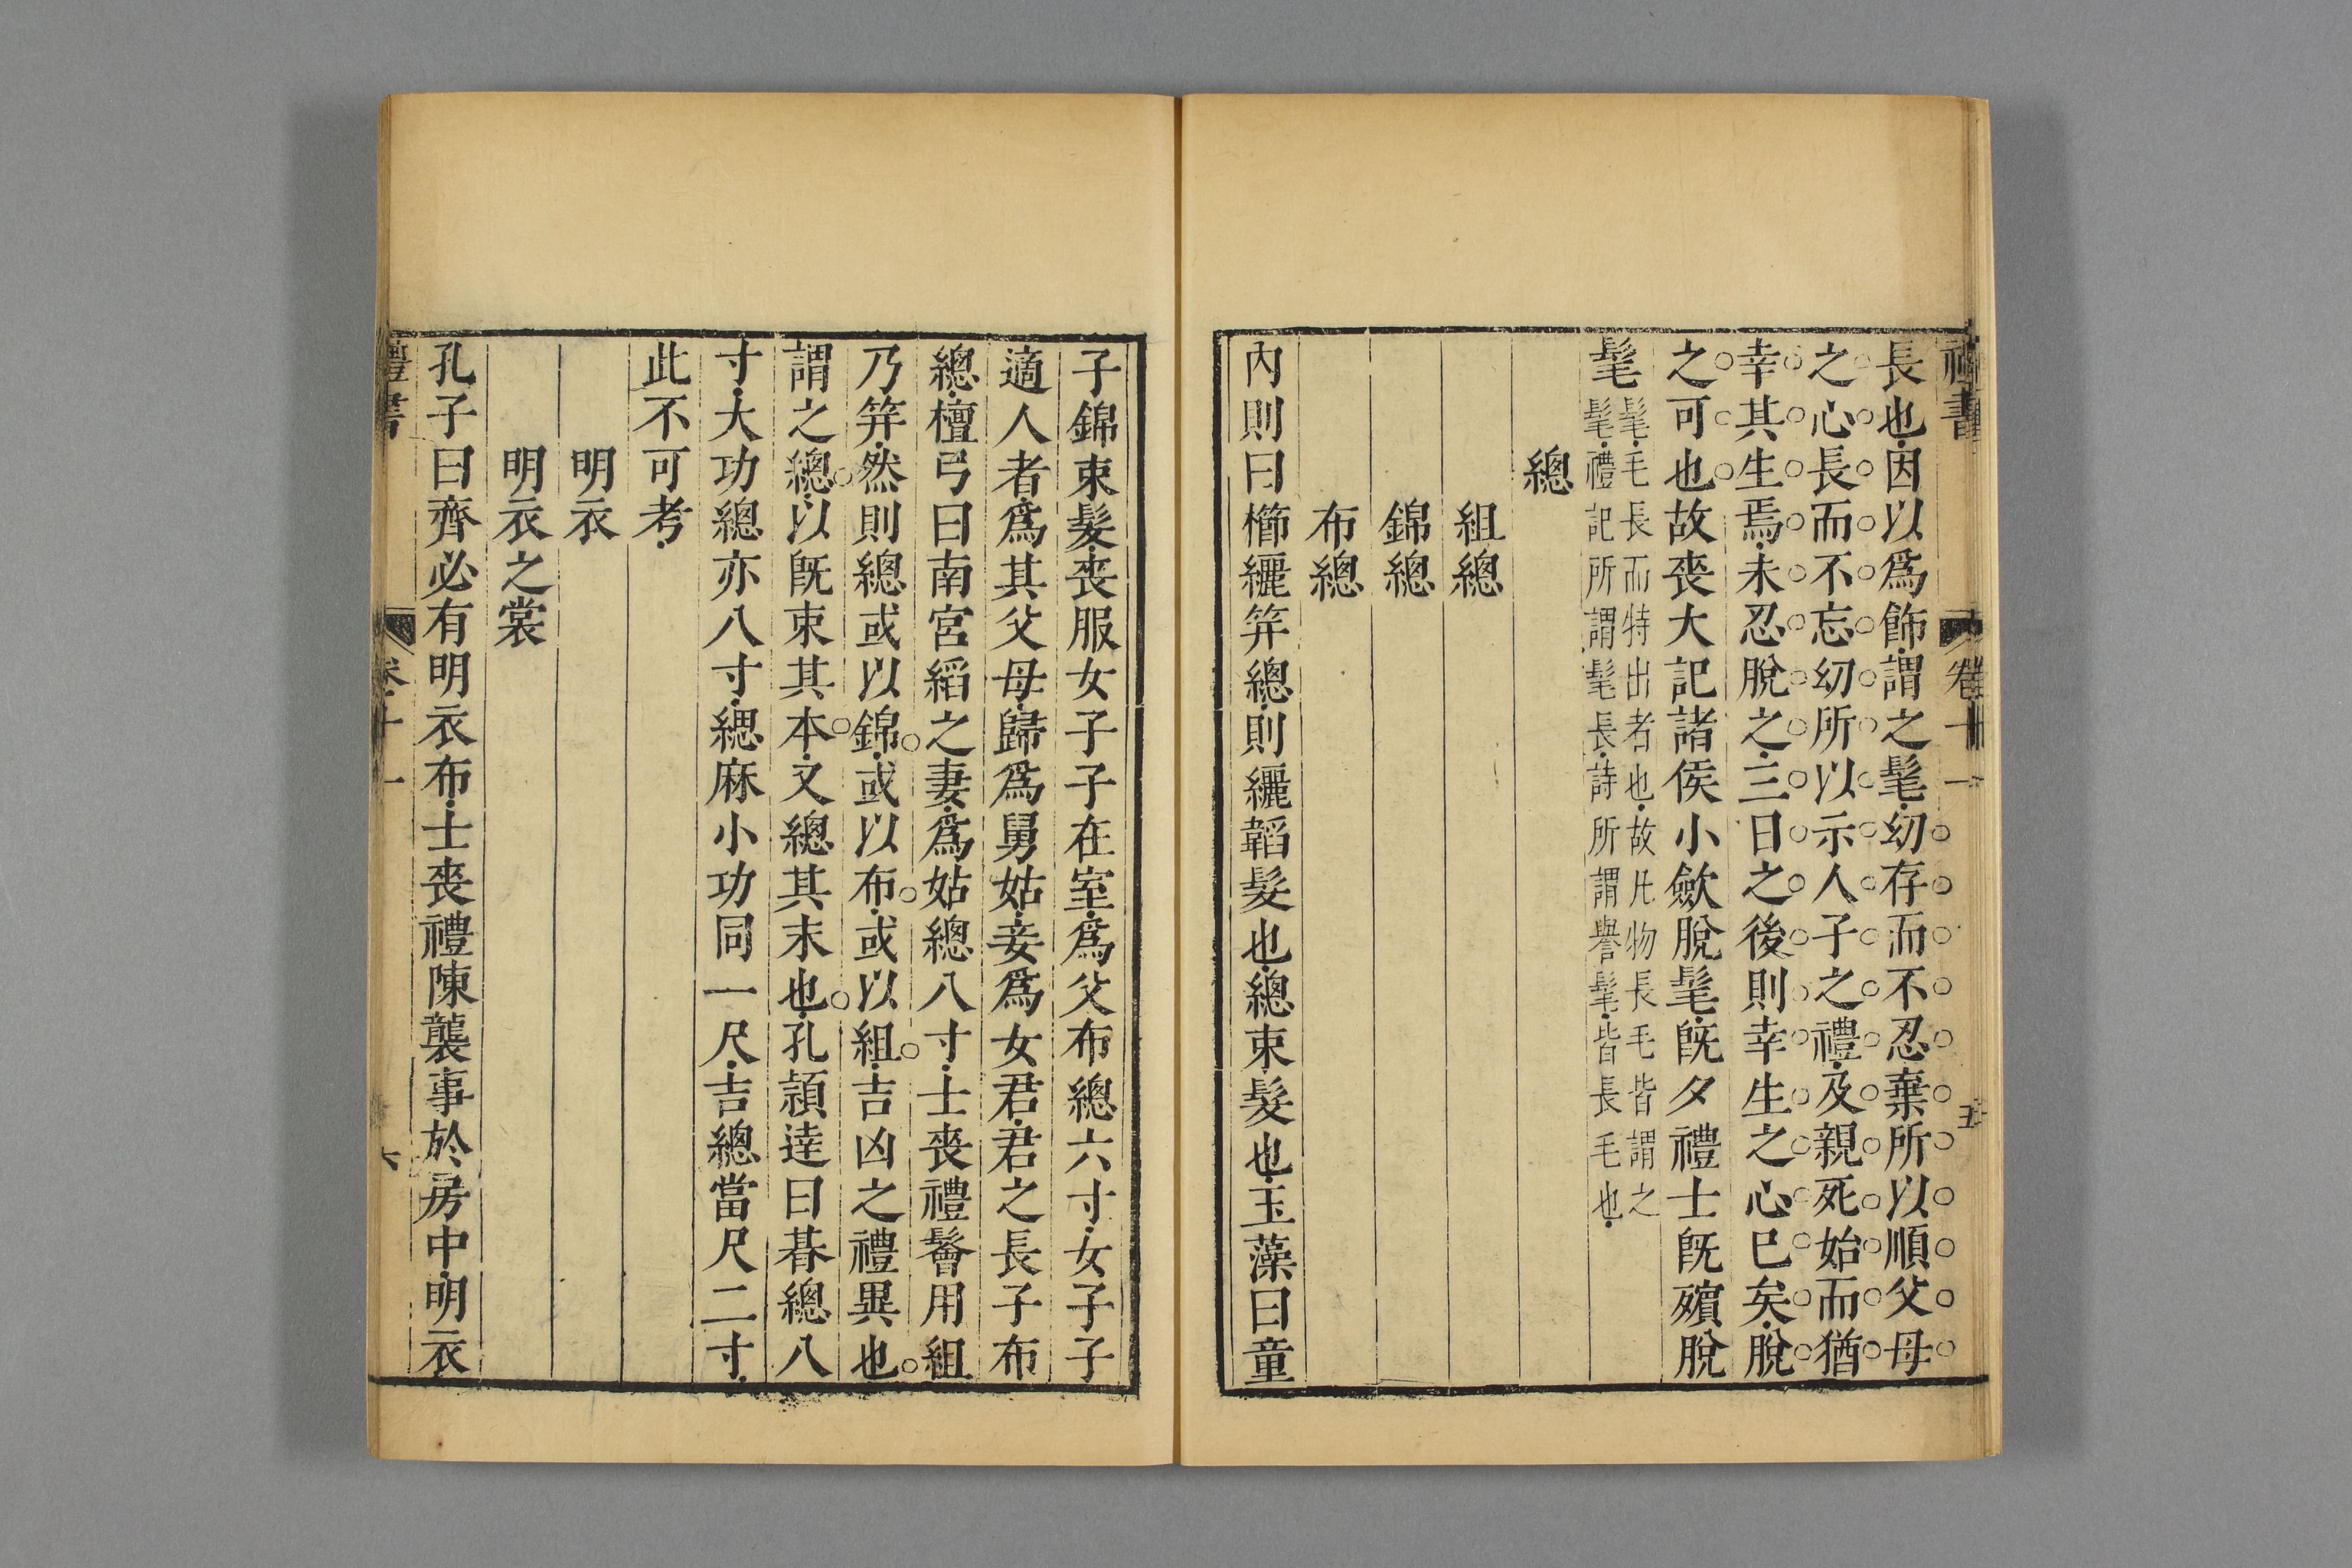 禮書 卷十一 五
長也因以爲飾謂之髦幼存而不忍棄所以順父母
之心長而不忘幼所以示人子之禮及親死始而猶
幸其生焉未忍脫之三日之後則幸生之心已矣脫
之可也故喪大記諸侯小歛脫髦旣夕禮士旣殯脫
髦
髦毛長而特出者也故凡物長毛皆謂之
髦禮記所謂髦長詩所謂譽髦皆長毛也
總
組總
錦總
布總
內則曰櫛纚笄總則纚韜髮也總束髮也玉藻曰童
子錦束髮喪服女子子在室爲父布總六寸女子子
適人者爲其父母歸爲舅姑妾爲女君君之長子布
總檀弓曰南宮縚之妻爲姑總八寸士喪禮鬠用組
乃笄然則總或以錦或以布或以組吉凶之禮異也
謂之總以旣束其本又總其末也孔頴逹曰朞總八
寸大功總亦八寸緦麻小功同一尺吉總當尺二寸
此不可考
明衣
明衣之裳
孔子曰齊必有明衣布士喪禮陳襲事於房中明衣
禮書 卷十一 六